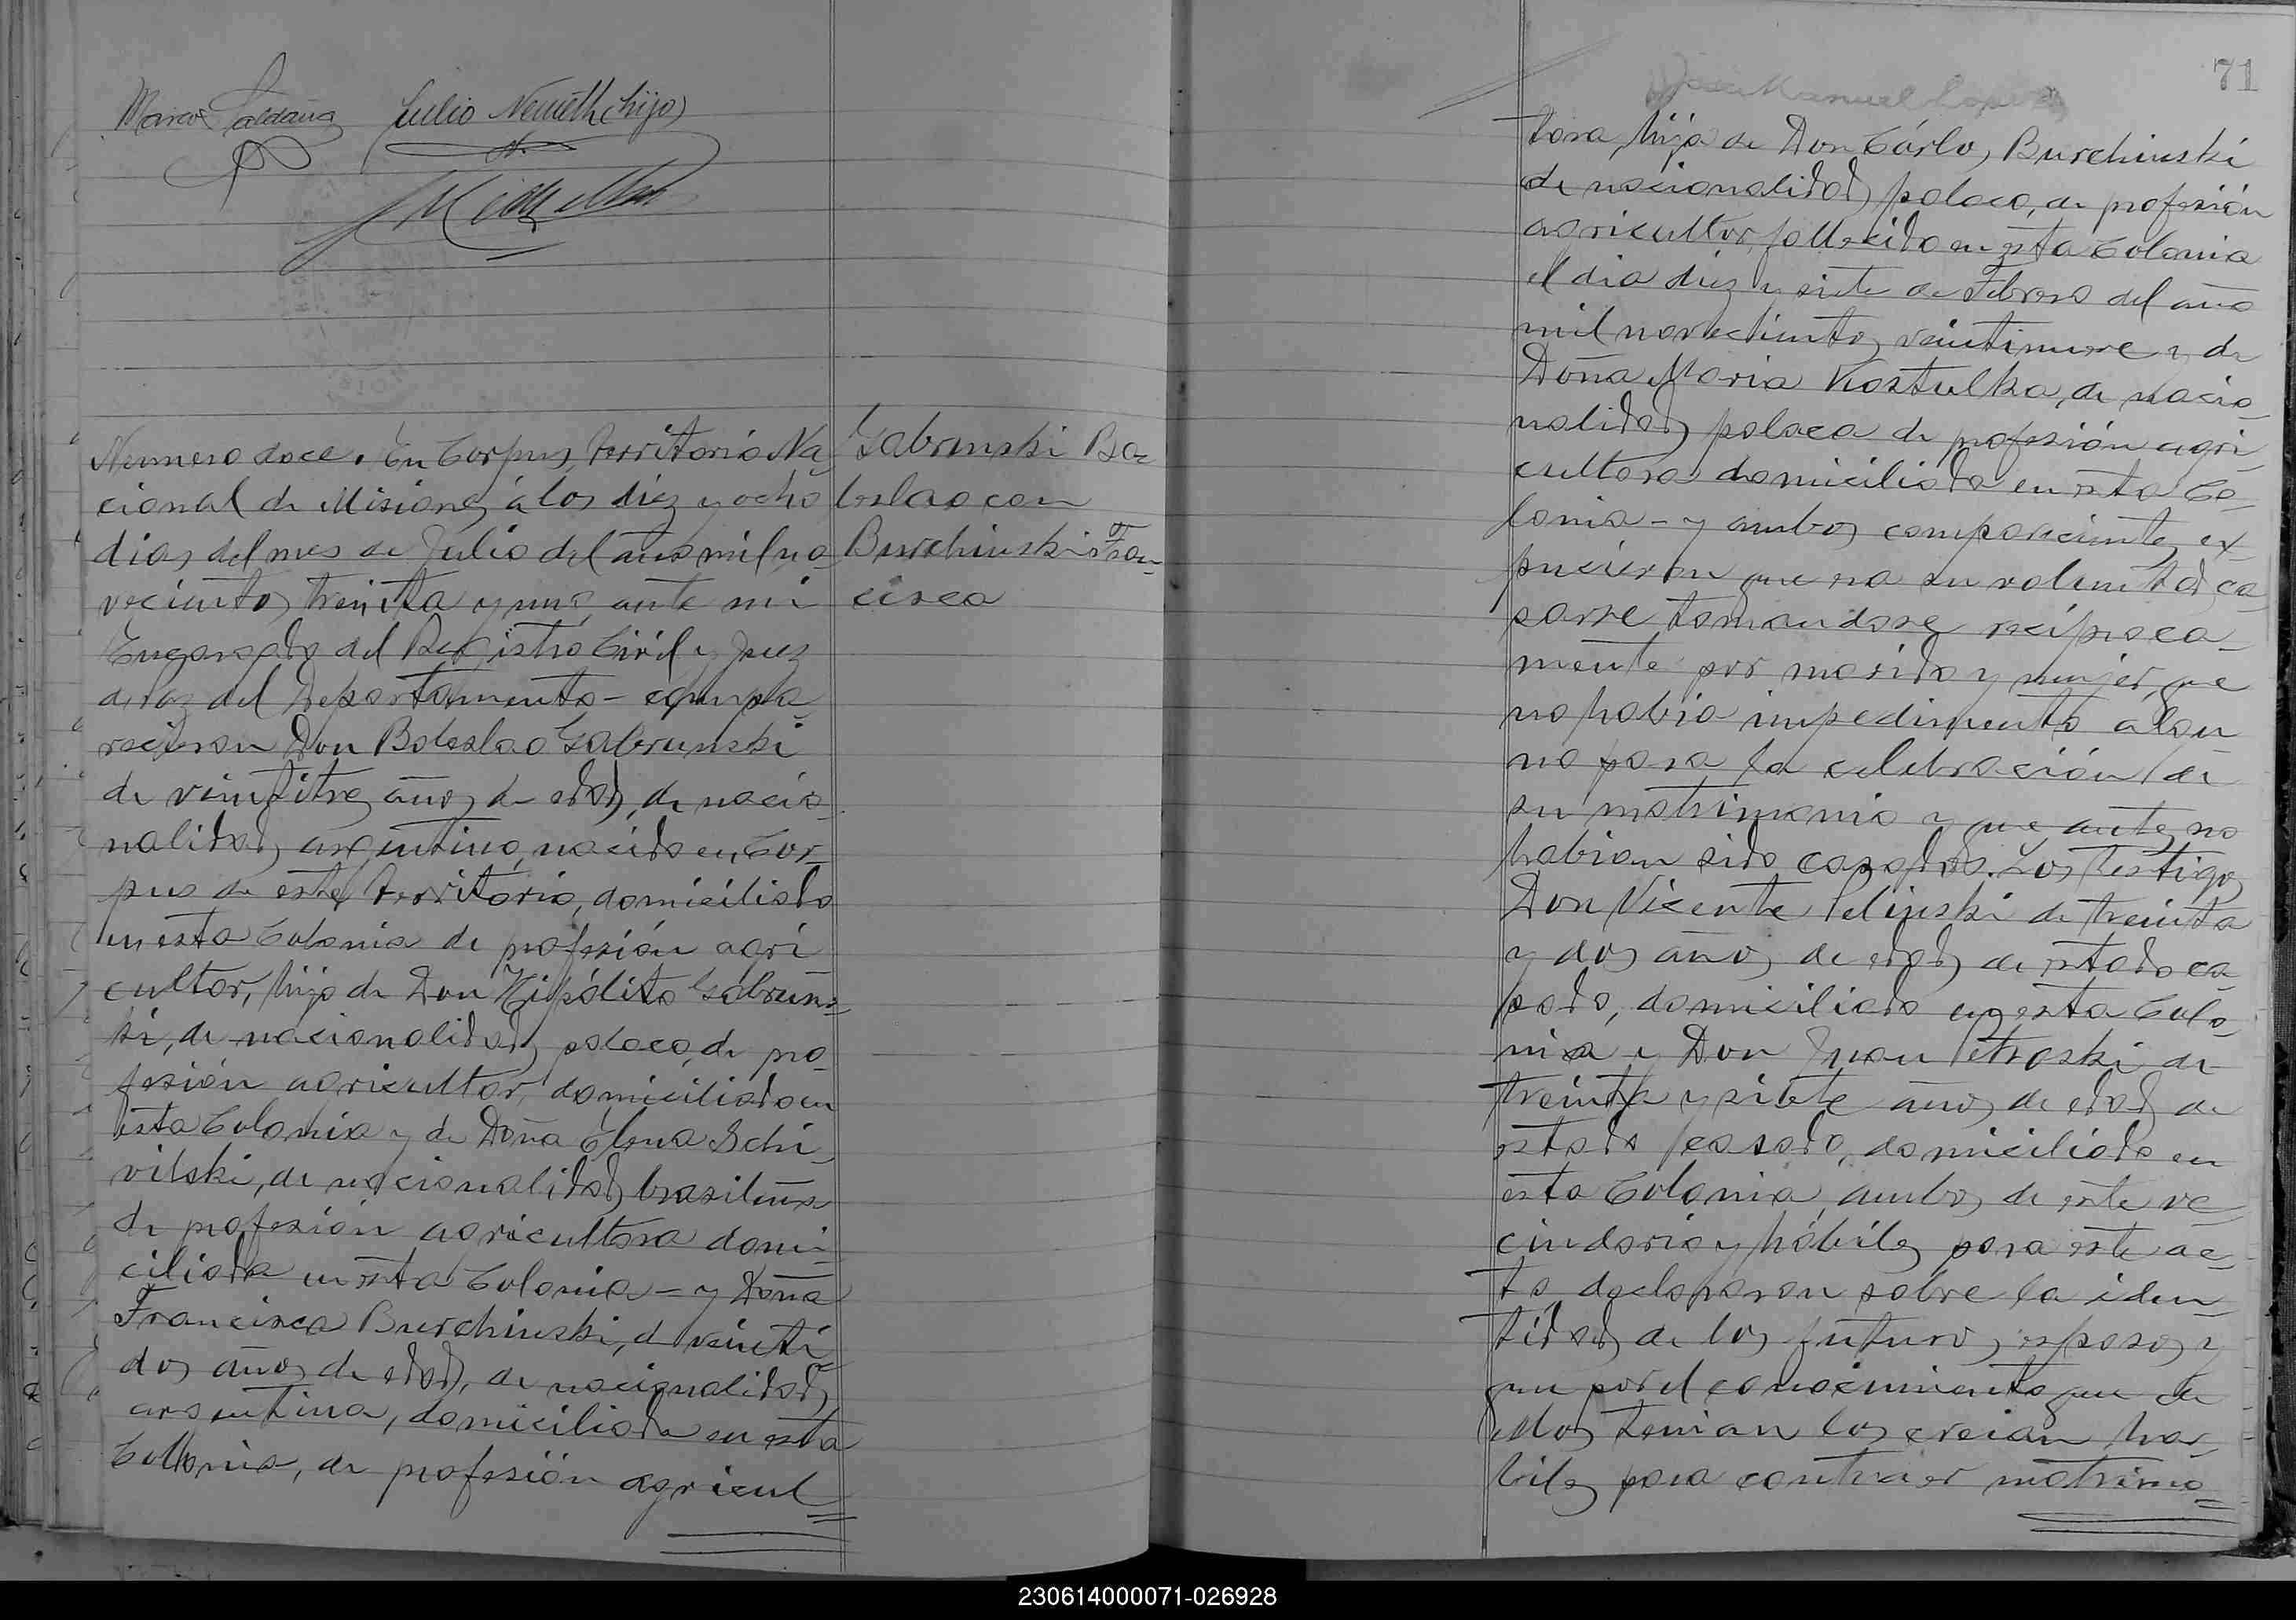 Marcos Saldaña Julio Nemeth (hijo)
Numero doce. En Corpus, Territorio Na-
cional de Misiones, á los diez y ocho
dias del mes de Julio del año mil no-
vecientos treinta y uno, ante mi
Encargado del Registro Civil y Juez
de Paz del Departamento - compa-
recieron Don Boleslao Gabrunski
de veintitres años de edad, de nacio-
nalidad argentino, nacido en Cor-
pus de este Territorio, domiciliado
en esta Colonia de profesión agri
cultor, hijo de Don Hipólito Gabruns-
ki, de nacionalidad polaco, de pro-
fesión agricultor, domiciliado en
esta Colonia y de Doña Elena Schi-
vilski, de nacionalidad brasileña
de profesión agricultora domi-
ciliada en esta Colonia - y Doña
Francisca Burchinski, de veinti
dos años de edad, de nacionalidad
argentina, domiciliada en esta
Colonia, de profesión agricul
Gabrunski Bo-
leslao con
Burchinski Fran-
cisca
71
José Manuel Lopez
tora, hija de Don Cárlos Burchinski
de nacionalidad polaco, de profesión
agricultor, fallecido en esta Colonia
el dia diez y siete de Febrero del año
mil novecientos veintinueve y de
Doña Maria Kostulka, de nacio-
nalidad polaca de profesión agri-
cultora domiciliada en esta Co-
lonia - y ambos comparecientes ex-
pucieron que era su voluntad ca-
sarse tomandose recíproca-
mente por marido y mujer, que
no habia impedimento algu
no para la celebración de
su matrimonio y que antes no
habian sido casados. Los testigos
Don Vicente Pelinski de treinta
y dos años de edad, de estado ca
sado, domiciliado en esta Colo-
nia y Don Juan Petroski de
treinta y siete años de edad de
estado casado, domiciliado en
esta Colonia, ambos de este ve-
cindario y hábiles para este ac-
to declararon sobre la iden-
tidad de los futuros esposos y
que por el conocimiento que de
ellos tenian los creian ha-
biles para contraer matrimo
230614000071-026928